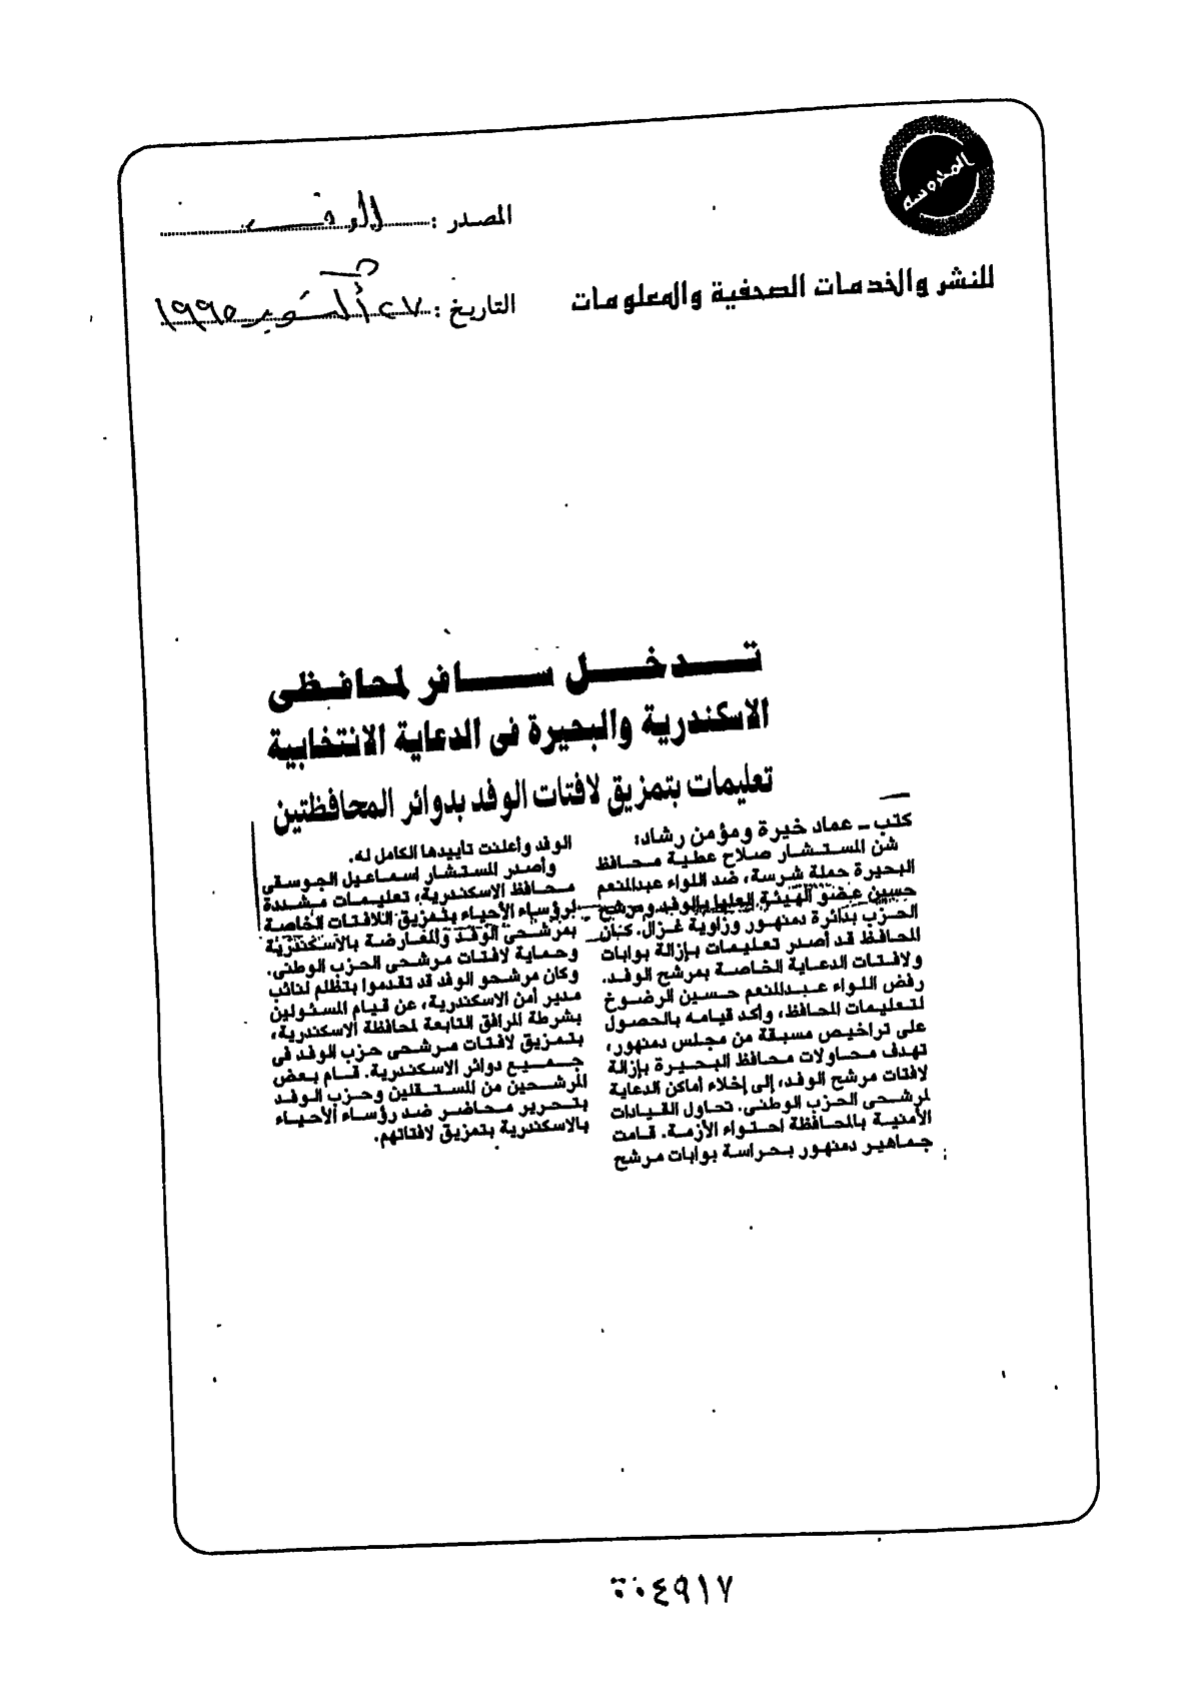 المحروسة
للنشر والخدمات الصحفية والمعلومات
المصدر : الوفد
التاريخ : ٢٧ أكتوبر ١٩٩٥
تدخل سافر لمحافظى
الاسكندرية والبحيرة فى الدعاية الانتخابية
تعليمات بتمزيق لافتات الوفد بدوائر المحافظتين
كتب ـ عماد خيرة ومؤمن رشاد:
شن المستشار صلاح عطية محافظ
البحيرة حملة شرسة، ضد اللواء عبدالمنعم
حسين عضو الهيئة العليا بالوفد ومرشح
الحزب بدائرة دمنهور وزاوية غزال. كان
المحافظ قد أصدر تعليمات بإزالة بوابات
ولافتات الدعاية الخاصة بمرشح الوفد.
رفض اللواء عبدالمنعم حسين الرضوخ
لتعليمات المحافظ، وأكد قيامه بالحصول
على تراخيص مسبقة من مجلس دمنهور،
تهدف محاولات محافظ البحيرة بإزالة
لافتات مرشح الوفد، إلى إخلاء أماكن الدعاية
لمرشحى الحزب الوطنى. تحاول القيادات
الأمنية بالمحافظة احتواء الأزمة. قامت
جماهير دمنهور بحراسة بوابات مرشح
الوفد وأعلنت تاييدها الكامل له.
وأصدر المستشار اسماعيل الجوسقى
محافظ الاسكندرية، تعليمات مشددة
لرؤساء الأحياء بتمزيق اللافتات الخاصة
بمرشحى الوفد والمعارضة بالاسكندرية
وحماية لافتات مرشحى الحزب الوطنى.
وكان مرشحو الوفد قد تقدموا بتظلم لنائب
مدير أمن الاسكندرية، عن قيام المسئولين
بشرطة المرافق التابعة لمحافظة الاسكندرية،
بتمزيق لافتات مرشحى حزب الوفد فى
جميع دوائر الاسكندرية. قام بعض
المرشحين من المستقلين وحزب الوفد
بتحرير محاضر ضد رؤساء الأحياء
بالاسكندرية بتمزيق لافتاتهم.